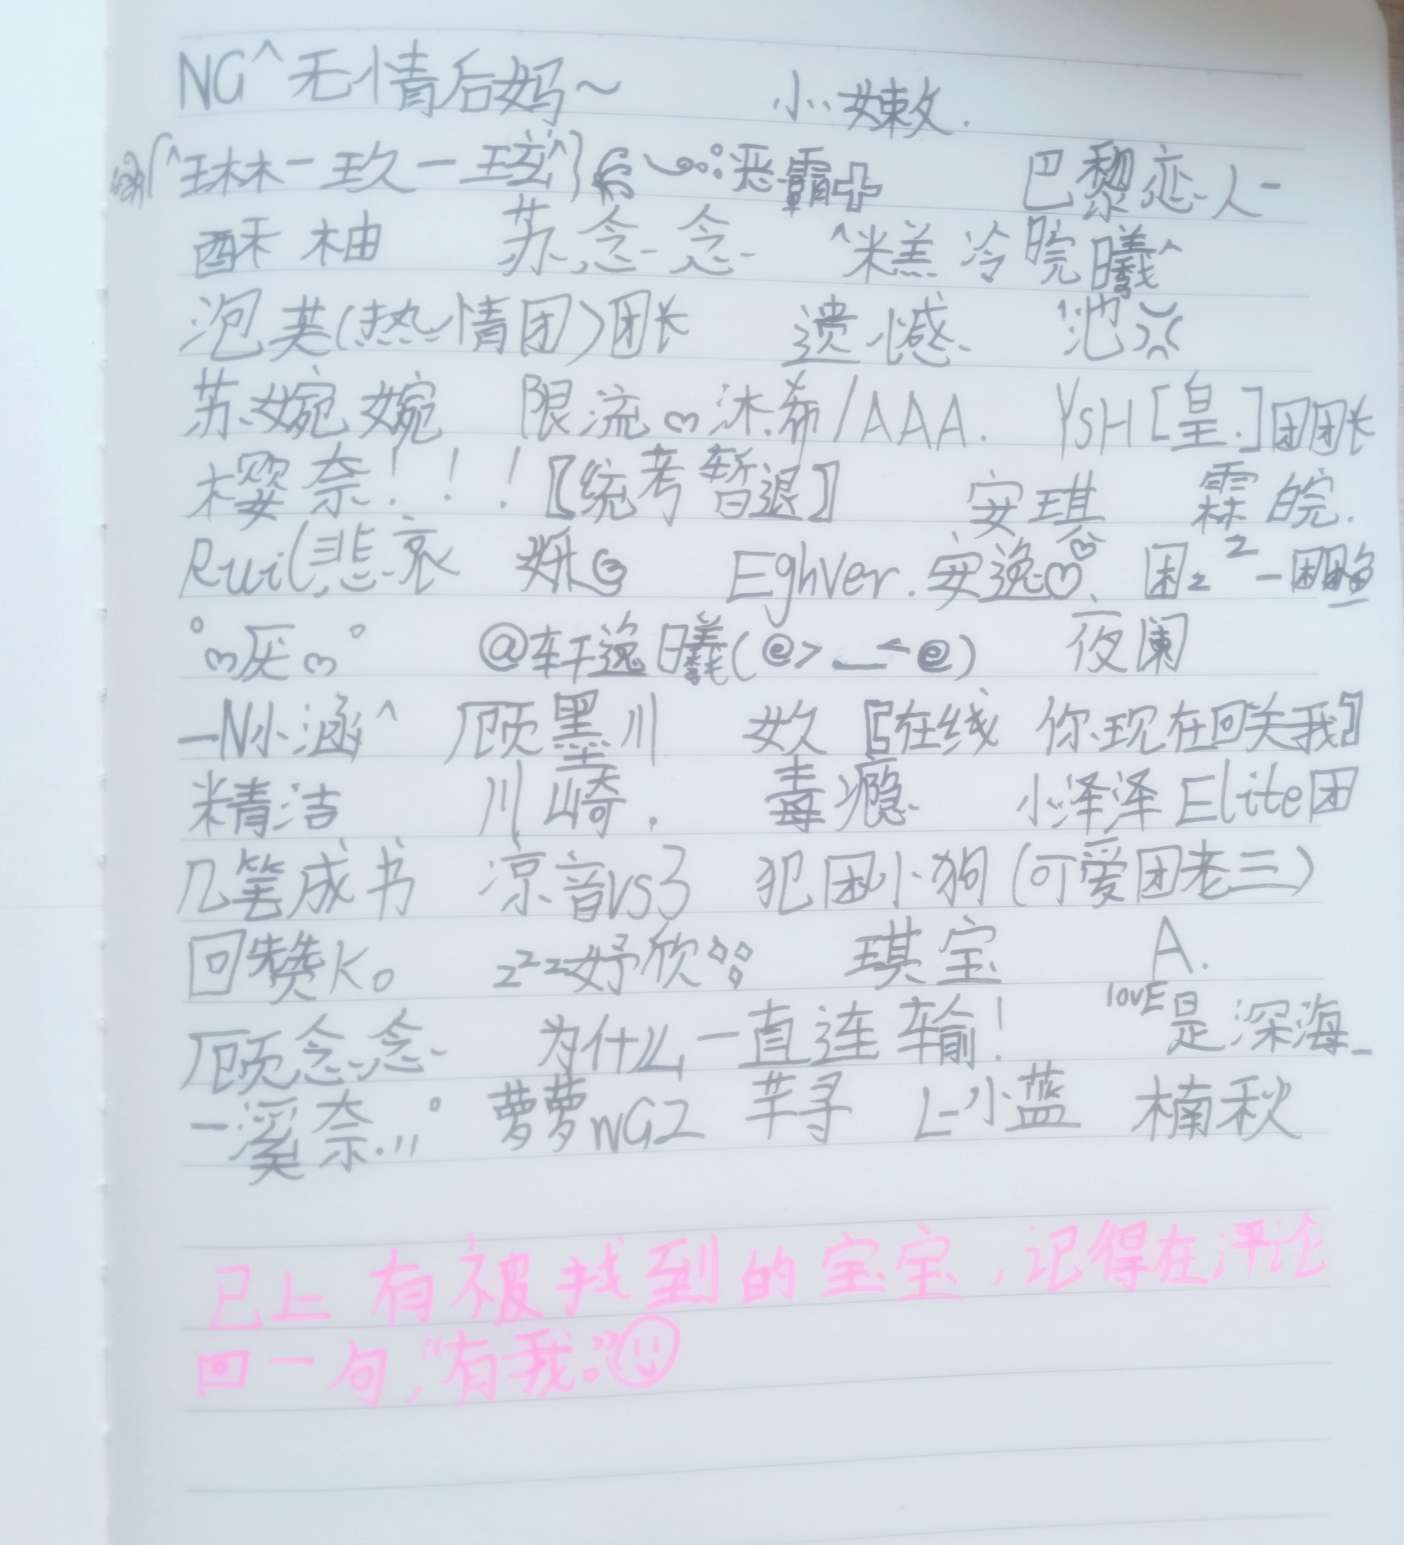 NG^无情后妈~ 小嫩.
^琳-玖-琼^ 恶霸 巴黎恋人-
酥柚 苏念念 ^糕冷晥曦^
泡芙(热情团)团长 遗憾 池
苏婉婉 限流 沐希/AAA. YSH[皇.]团团长
樱奈!!!〖统考暂退〗 安琪 霖皖.
Rui(悲哀 Eghver.安逸 困z z
厌 @轩逸曦(@>_^@) 夜阑
-N小涵^ 顾墨川 〖在线 你现在回关我〗
精洁 川崎. 毒瘾 小泽泽Elite团
几笔成书 凉音VS3 犯困小狗(可爱团老三)
回赞K。 zzz妤欣 琪宝 A.
顾念念 为什么一直连输! lovE是深海_
-溪奈... 萝萝WG2 芊寻 L-小蓝 楠秋
已上有被找到的宝宝,记得在评论
回一句,“有我。”